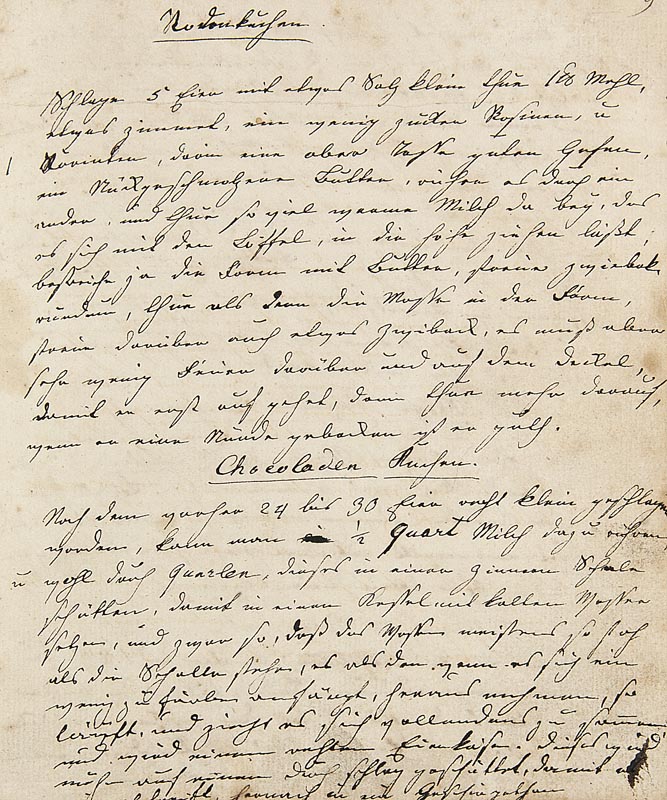 Rodonkuchen.
Schlage 5 Eier mit etwas Salz klein thue 1 ℔ Mehl,
etwas Zimmet, ein wenig Zucker Rosinen, u
Korinten, darin eine ober Tasse guten Gesen,
ein Stück geschmolzene Butter, rühre es durch ein
ander, und thue so viel warme Milch da bey, das
es sich mit den Löffel, in die höhe ziehen läßt,
bestreiche ja die Form mit Butter, streue Zwieback
rundum, thue als denn die Masse in der Form,
streue darüber auch etwas Zwiback, es muß aber
sehr wenig Feuer darüber und auf dem Deckel,
damit er erst auf gehet, dann thue mehr darauf,
wenn er eine Stunde gebacken ist er guth.
Chocoladen Kuchen.
Nach dem vorher 24 bis 30 Eier recht klein geschlagen
worden, kann man ½ Quart Milch dazu rühren
u wohl durch Querlen, dieses in einer Zinnern Schale
schütten, damit in einen Kessel mit kalten Wasser
setzen, und zwar so, daß das Wasser meistens so hoch
als die Schalle stehe, es als dan wenn es sich ein
wenig zu anfängt, heraus nehmen, so
läuft, und zieht es sich vollendens zu sammen
und wird einem rechten Eierkäse. dieses wird
nuhn auf einem durch schlag geschüttet, damit
hernach in ein